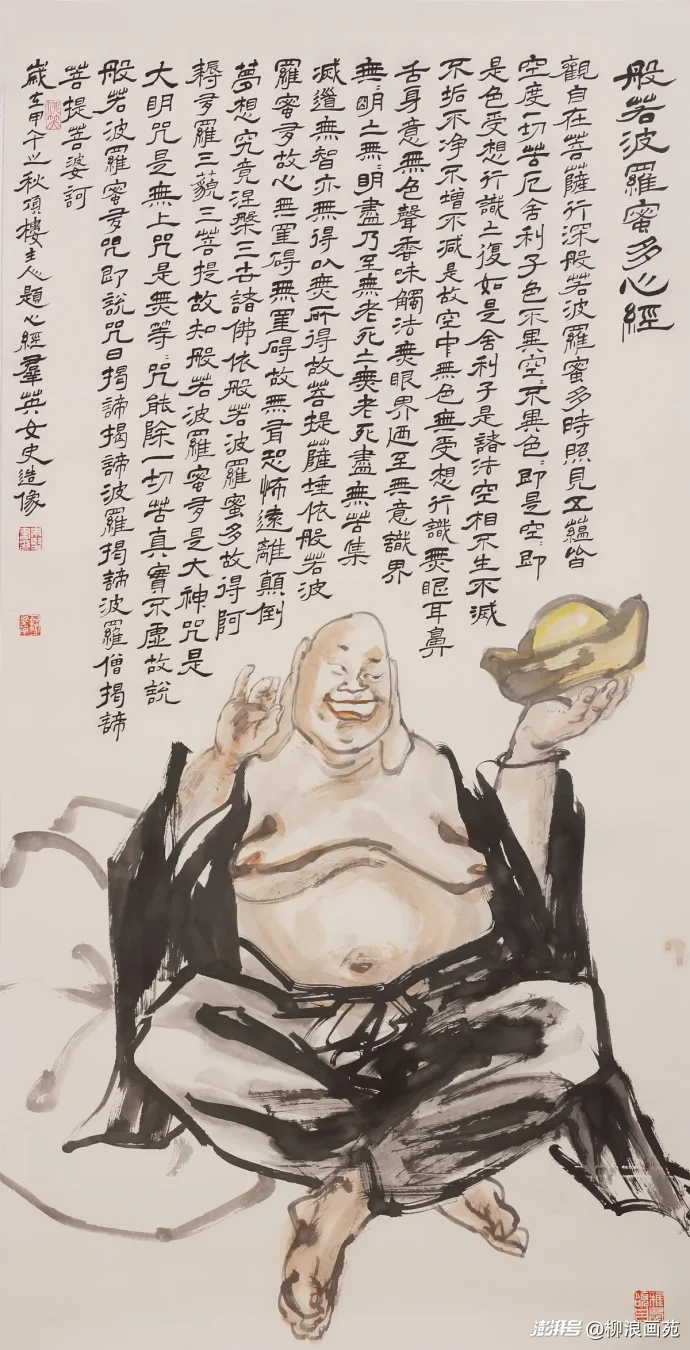 般若波羅蜜多心經
觀自在菩薩行深般若波羅蜜多時照見五蘊皆
空度一切苦厄舍利子色不異空:不異色:即是空:即
是色受想行識亦復如是舍利子是諸法空相不生不滅
不垢不净不增不減是故空中無色無受想行識無眼耳鼻
舌身意無色聲香味觸法無眼界乃至無意識界
無:明亦無:明盡乃至無老死亦無老死盡無苦集
滅道無智亦無得以無所得故菩提薩埵依般若波
羅蜜多故心無罣碍無罣碍故無有恐怖遠離顛倒
夢想究竟涅槃三世諸佛依般若波羅蜜多故得阿
耨多羅三藐三菩提故知般若波羅蜜多是大神咒是
大明咒是無上咒是無等:咒能除一切苦真實不虛故說
般若波羅蜜多咒即說咒曰揭諦揭諦波羅揭諦波羅僧揭諦
菩提菩婆訶
歲在甲午之秋頂樓主人題心經羣英女史造像
澎湃号 @柳浪画苑